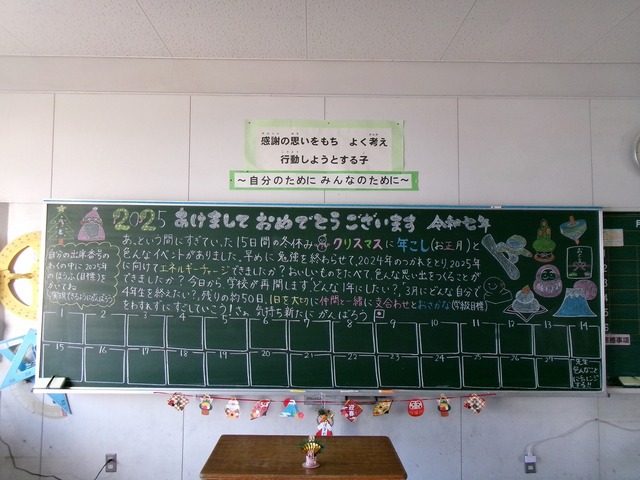 感謝の思いをもち よく考え
行動しようとする子
～自分のために みんなのために～
2025 あけまして おめでとうございます 令和七年
あっという間にすぎていった15日間の冬休み クリスマスに年こし(お正月)と
色んなイベントがありました。早めに勉強を終わらせて、2024年のつかれをとり、2025年
に向けてエネルギーチャージできましたか?おいしいものをたべて色んな思い出をつくることが
できましたか?今日から学校が再開します。どんな1年にしたい?3月にどんな自分で
4年生を終えたい?残りの約50日、1日を大切に仲間と一緒に支え合わせと
をわすれずにすごしていこう!さぁ、気持ち新たにがんばろう
自分の出席番号の
わくの中に2025年
の
かいてね
1 2 3 4 5 6 7 8 9 10 11 12 13 14
15 16 17 18 19 20 21 22 23 24 25 26 27
先生
色んなこと
にチャレンジ
する!!